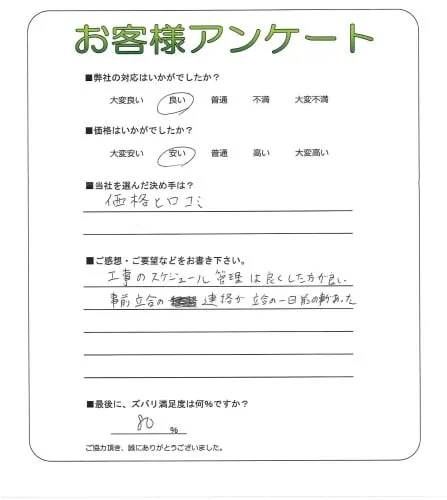 お客様アンケート
■弊社の対応はいかがでしたか？
大変良い 良い 普通 不満 大変不満
■価格はいかがでしたか？
大変安い 安い 普通 高い 大変高い
■当社を選んだ決め手は？
価格と口コミ
■ご感想・ご要望などをお書き下さい。
工事のスケジュール管理は良くした方が良い
事前立合の 連絡が立合の一日前の あった
■最後に、ズバリ満足度は何%ですか？
80 %
ご協力頂き、誠にありがとうございました。